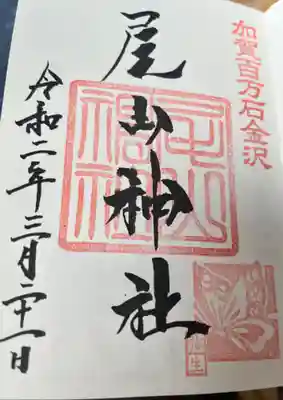 加賀百万石金沢
尾山神社
尾山神社
令和二年三月二十一日